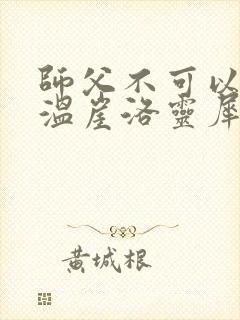 師父不可以
溫崖洛靈犀
黃城根